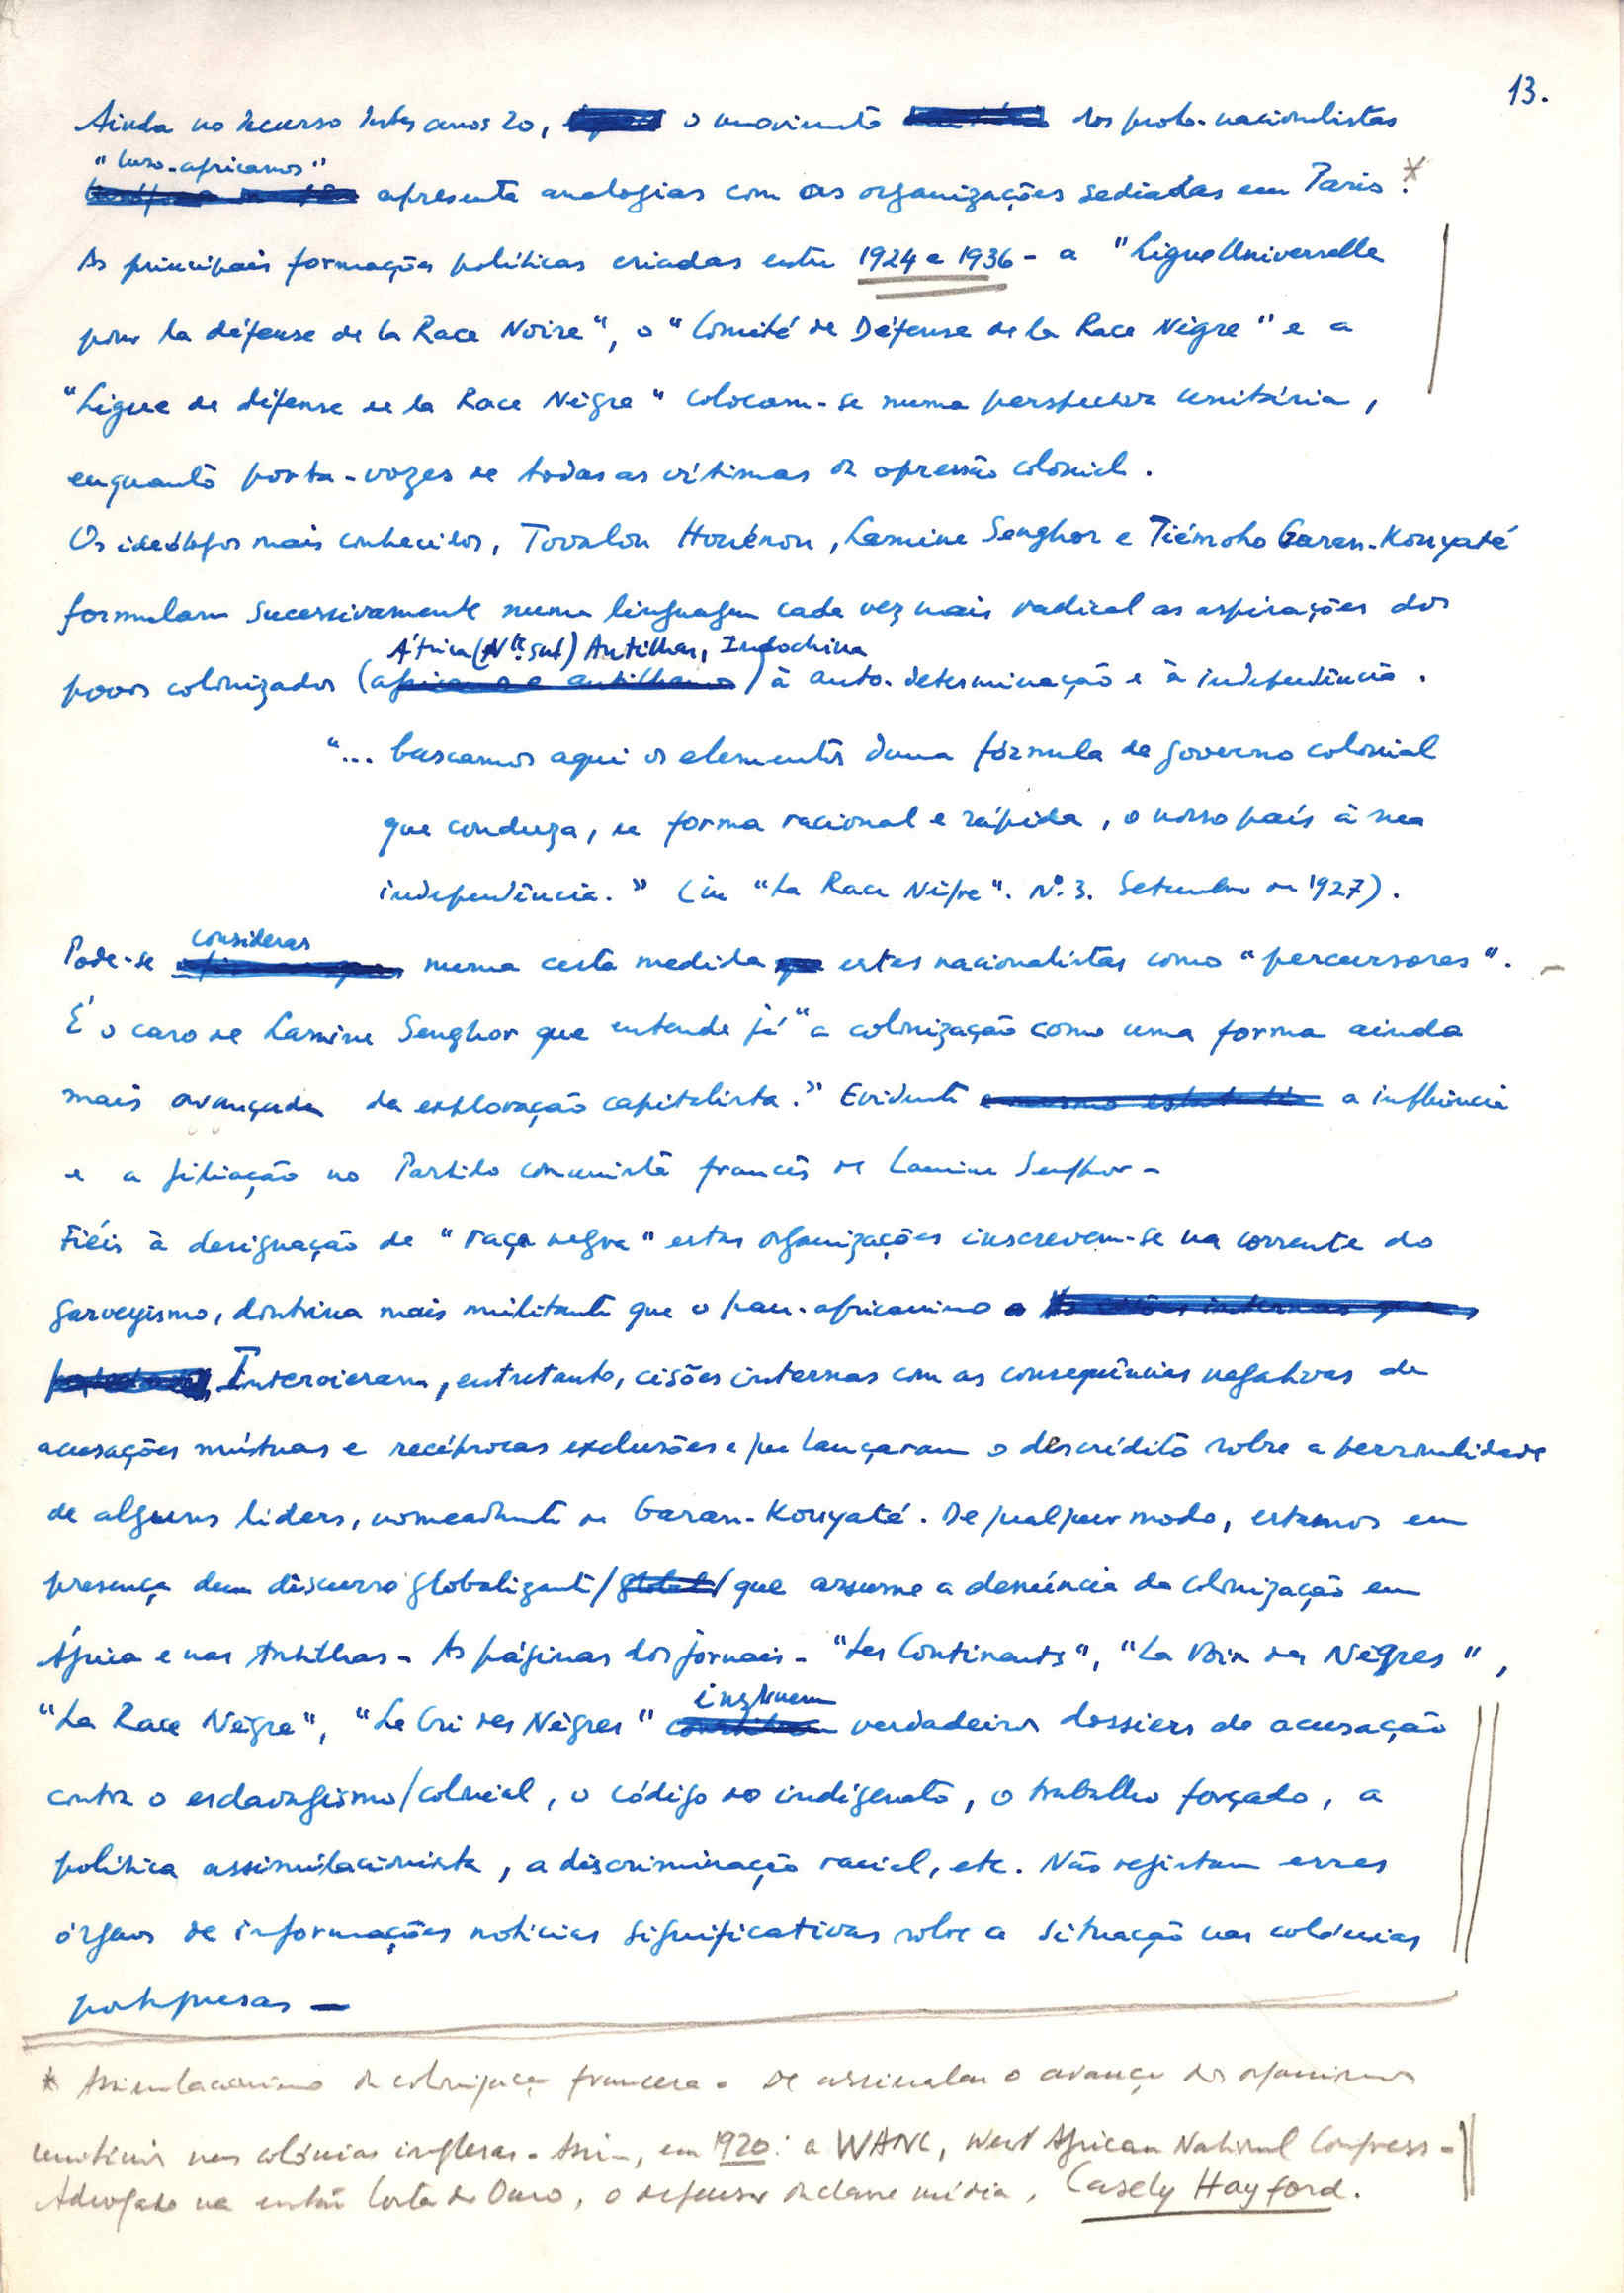 13.
Ainda no decurso destes anos 20, o movimento dos proto-nacionalistas
"luso-africanos"
apresenta analogias com as organizações sediadas em Paris.*
As principais formações políticas criadas entre 1924 e 1936 - a "Ligue Universelle
pour la défense de la Race Noire", o "Comité de Défense de la Race Nègre" e a
"Ligue de défense de la Race Nègre" colocam-se numa perspectiva unitária,
enquanto porta-vozes de todas as vítimas da opressão colonial.
Os ideólogos mais conhecidos, Tovalou Houénou, Lamine Senghor e Tiémoho Garan-Kouyaté
formulam sucessivamente numa linguagem cada vez mais radical as aspirações dos
África (Nte. Sul) Antilhas, Indochina
povos colonizados (africanos e antilhanos) à auto-determinação e à independência.
"... buscamos aqui os elementos duma fórmula de governo colonial
que conduza, de forma racional e rápida, o nosso país à sua
independência." (in "La Race Nègre". Nº 3. Setembro de 1927).
considerar
Pode-se numa certa medida que estes nacionalistas como "percursores".
É o caso de Lamine Senghor que entende já "a colonização como uma forma ainda
mais avançada da exploração capitalista." Evidente a influência
e a filiação no Partido comunista francês de Lamine Senghor -
Fiéis à designação de "raça negra" estas organizações inscrevem-se na corrente do
garveyismo, doutrina mais militante que o pan-africanismo
Intervieram, entretanto, cisões internas com as consequências negativas de
acusações mútuas e recíprocas exclusões e que lançaram o descrédito sobre a personalidade
de alguns liders, nomeadamente de Garan-Kouyaté. De qualquer modo, estamos em
presença dum discurso globalizante/global/ que assume a denúncia da colonização em
África e nas Antilhas - As páginas dos jornais - "Les Continents", "La Voix des Nègres",
instruem
"La Race Nègre", "Le Cri des Nègres" constituem verdadeiros dossiers de acusação
contra o esclavagismo/colonial, o código do indigenato, o trabalho forçado, a
política assimilacionista, a discriminação racial, etc. Não registam esses
órgãos de informações notícias significativas sobre a situação nas colónias
portuguesas -
* Assimilacionismo da colonização francesa - De assinalar o avanço dos organismos
unitários nas colónias inglesas - Assim, em 1920: a WANC, West African National Congress -
Advogado na então Costa do Ouro, o defensor da classe média, Casely Hayford.